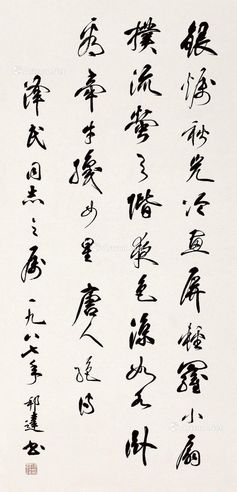 銀燭秋光冷畫屏輕羅小扇
撲流螢天階夜色涼如水卧
看牽牛織女星唐人絕
澤民同志之属一九八七年祁達書